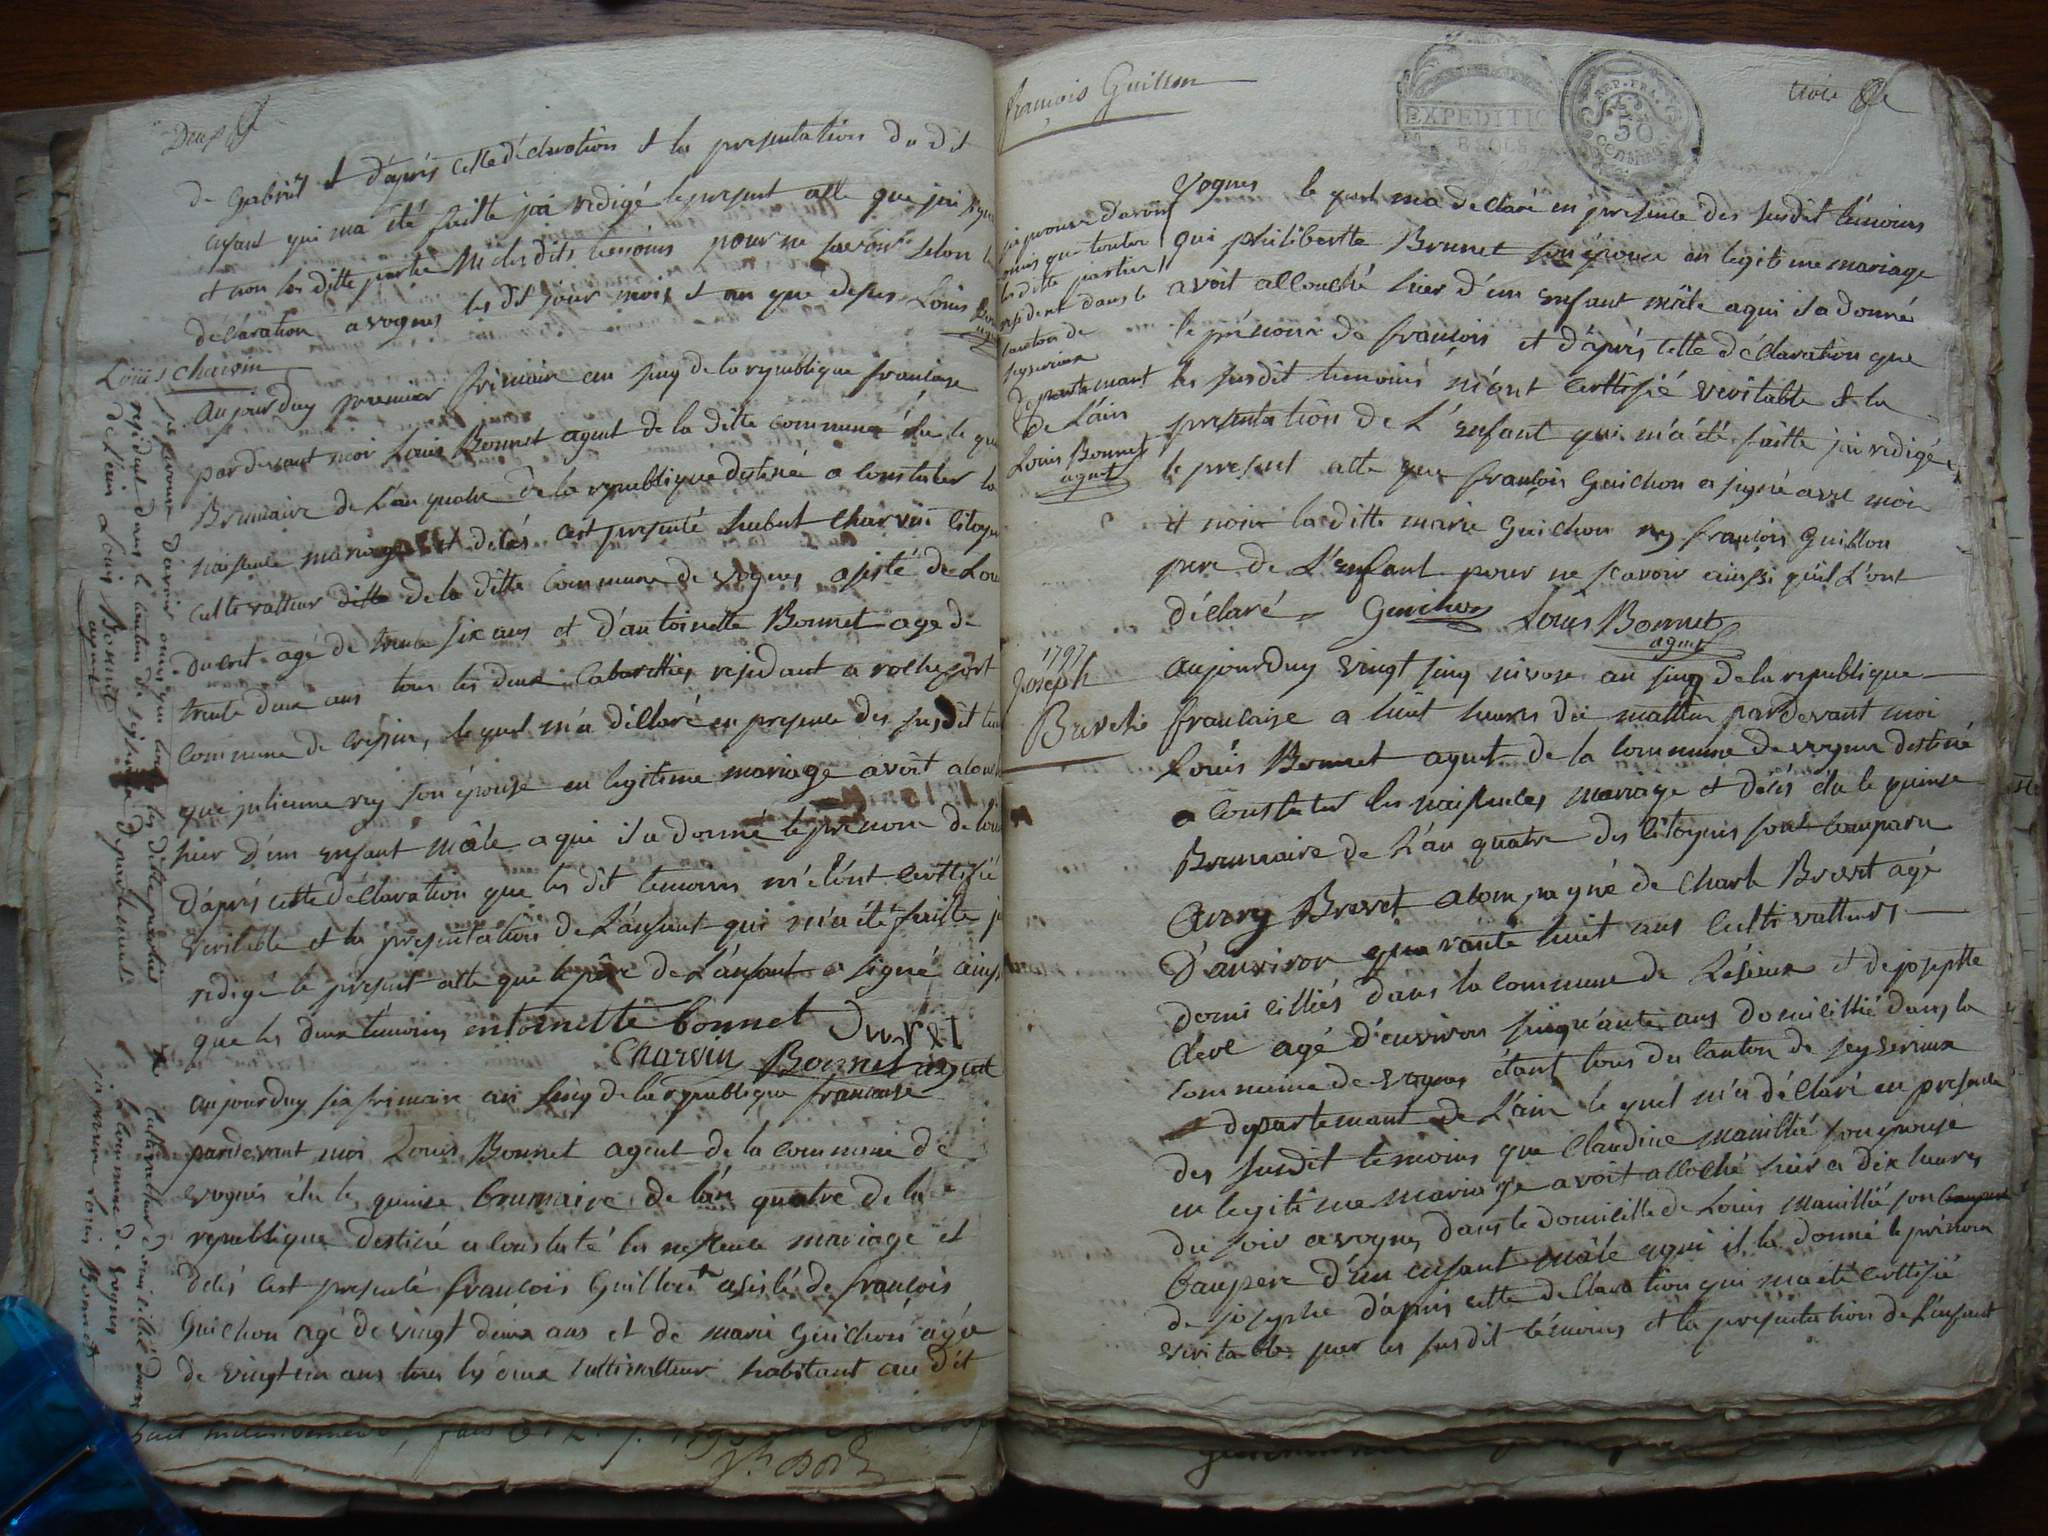 Deux
de Gabriel et d'aprés cette déclaration et la presentation du dit
enfant qui ma été faitte jai redigé le present atte que jai signé
et non les ditte partie ni les dits temoins pour ne savoir selon
déclaration a vognes les dit jour mois et an que depus Louis
Louis charvin
aujourduy premier frimaire an sinq de la republique francaise
par devant moi Louis Bonnet agent de la ditte commune élu le
Brumaire de l'an quatre de la republique destiné a constater la
naissence mariage et délés cest presenté hubert charvin
cultivatteur ditte de la ditte commune de vognes asisté de
ducrit agé de trente six ans et d'antoinette Bonnet age de
trente deux ans tous les deux Cabarettiés residant a rochefort
commune de crépin, le quel m'a déclaré en presence des susdit
que julienne rey son épouse en legitime mariage avoit
hier d'un enfant mâle a qui il a donné le prenom de
d'aprés cette déclaration que les dit temoins m'élont certtifié
veritable et la presentation de l'enfant qui m'a été faitte
redigé le present atte que le père de l'enfant a signé
que les deux témoins entoinette bonnet
Charvin Bonnet agent
je prouve davoir omis que tou les ditte parties
resident dans le canton de seyserieux departemant
de l'ain Louis Bonnet
agent
aujourduy six frimaire an sinq de la republique francaise
pardevant moi Louis Bonnet agent de la commune de
vognes élu le quinse brumaire de l'an quatre de la
republique destiné a constaté les nessence mariage et
délés cest presenté francois Guillon + asisté de francois
Guichon agé de vingt deux ans et de marie Guichon agée
de vingt un ans tous les deux cultivatteur habitant au dit
+ cultivatteur domicillié dans
la commune de vognes
japrouve Louis Bonnet
francois Guillon
EXPEDITIO
REP. FRA.
50
CENTIMES
trois
vognes le quel m'a déclaré en presence des susdit témoins
qui philibertte Brunet son épouse en legitime mariage
avoit allouché hier d'un enfant mâle a qui il a donné
le prénom de francois et d'aprés cette déclaration que
les susdit temoins m'ont certtifié veritable et la
presentation de L'enfant qui m'a été faitte jai redigé
le present atte que francois Guichon a signé avec moi
et non la ditte marie Guichon ny francois Guillon
pere de L'enfant pour ne scavoir ainsi qu'il L'ont
déclaré Guichon Louis Bonnet
agent
je prouve davoir
omis que toutes
les ditte parties
resident dans le
canton de
seyserieux
departemant
de L'ain
Louis Bonnet
agent
1797
Joseph
Brevet
aujourduy vingt sinq nivose an sinq de la republique
francaise a huit heures du mattin par devant moi
Louis Bonnet agent de la commune de vognes destiné
a constater les naissences mariage et délés élu le quinse
Brumaire de L'an quatre des citoyens sont comparu
Brevet acompagné de Charle Brevet agé
d'anviron quarante huit ans cultivatteurs
domicilliés dans la commune de et de josephe
agé d'environ sinquante ans domicillié dans la
commune de vognes étant tous du canton de seyserieux
departemant de L'ain le quel m'a déclaré en presence
des susdit temoins que Claudine manillié son épouse
en legitime mariage avoit alloché hier a dix heures
du soir a vognes dans le domicille de Louis manillié son
baupere d'un enfant mâle a qui il la donné le prénom
de josephe d'aprés cette declaration qui ma été certtifié
veritable par les susdit témoins et la presentation de L'enfant